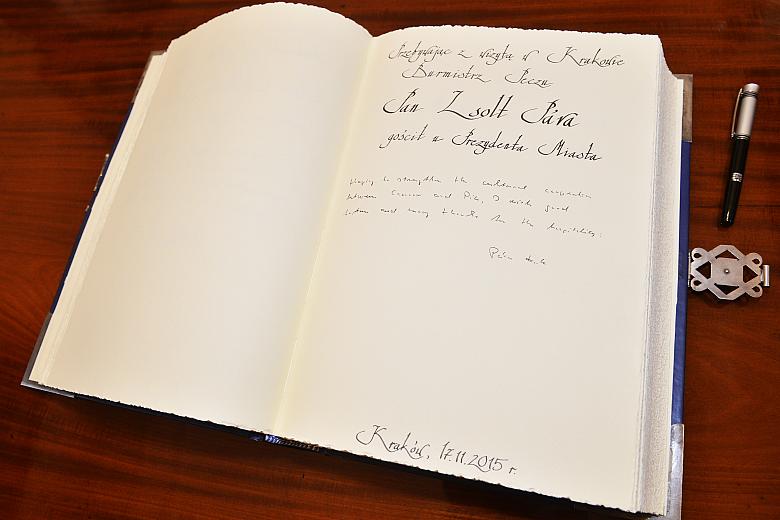 Przebywając z wizytą w Krakowie
Burmistrz Peczu
Pan Zsolt Páva
gościł u Prezydenta Miasta
to strengthen the cultural cooperation
between Cracow and Pécs, I wish good
and many thanks for the hospitality.
Páva Zsolt
Kraków, 17.11.2015 r.